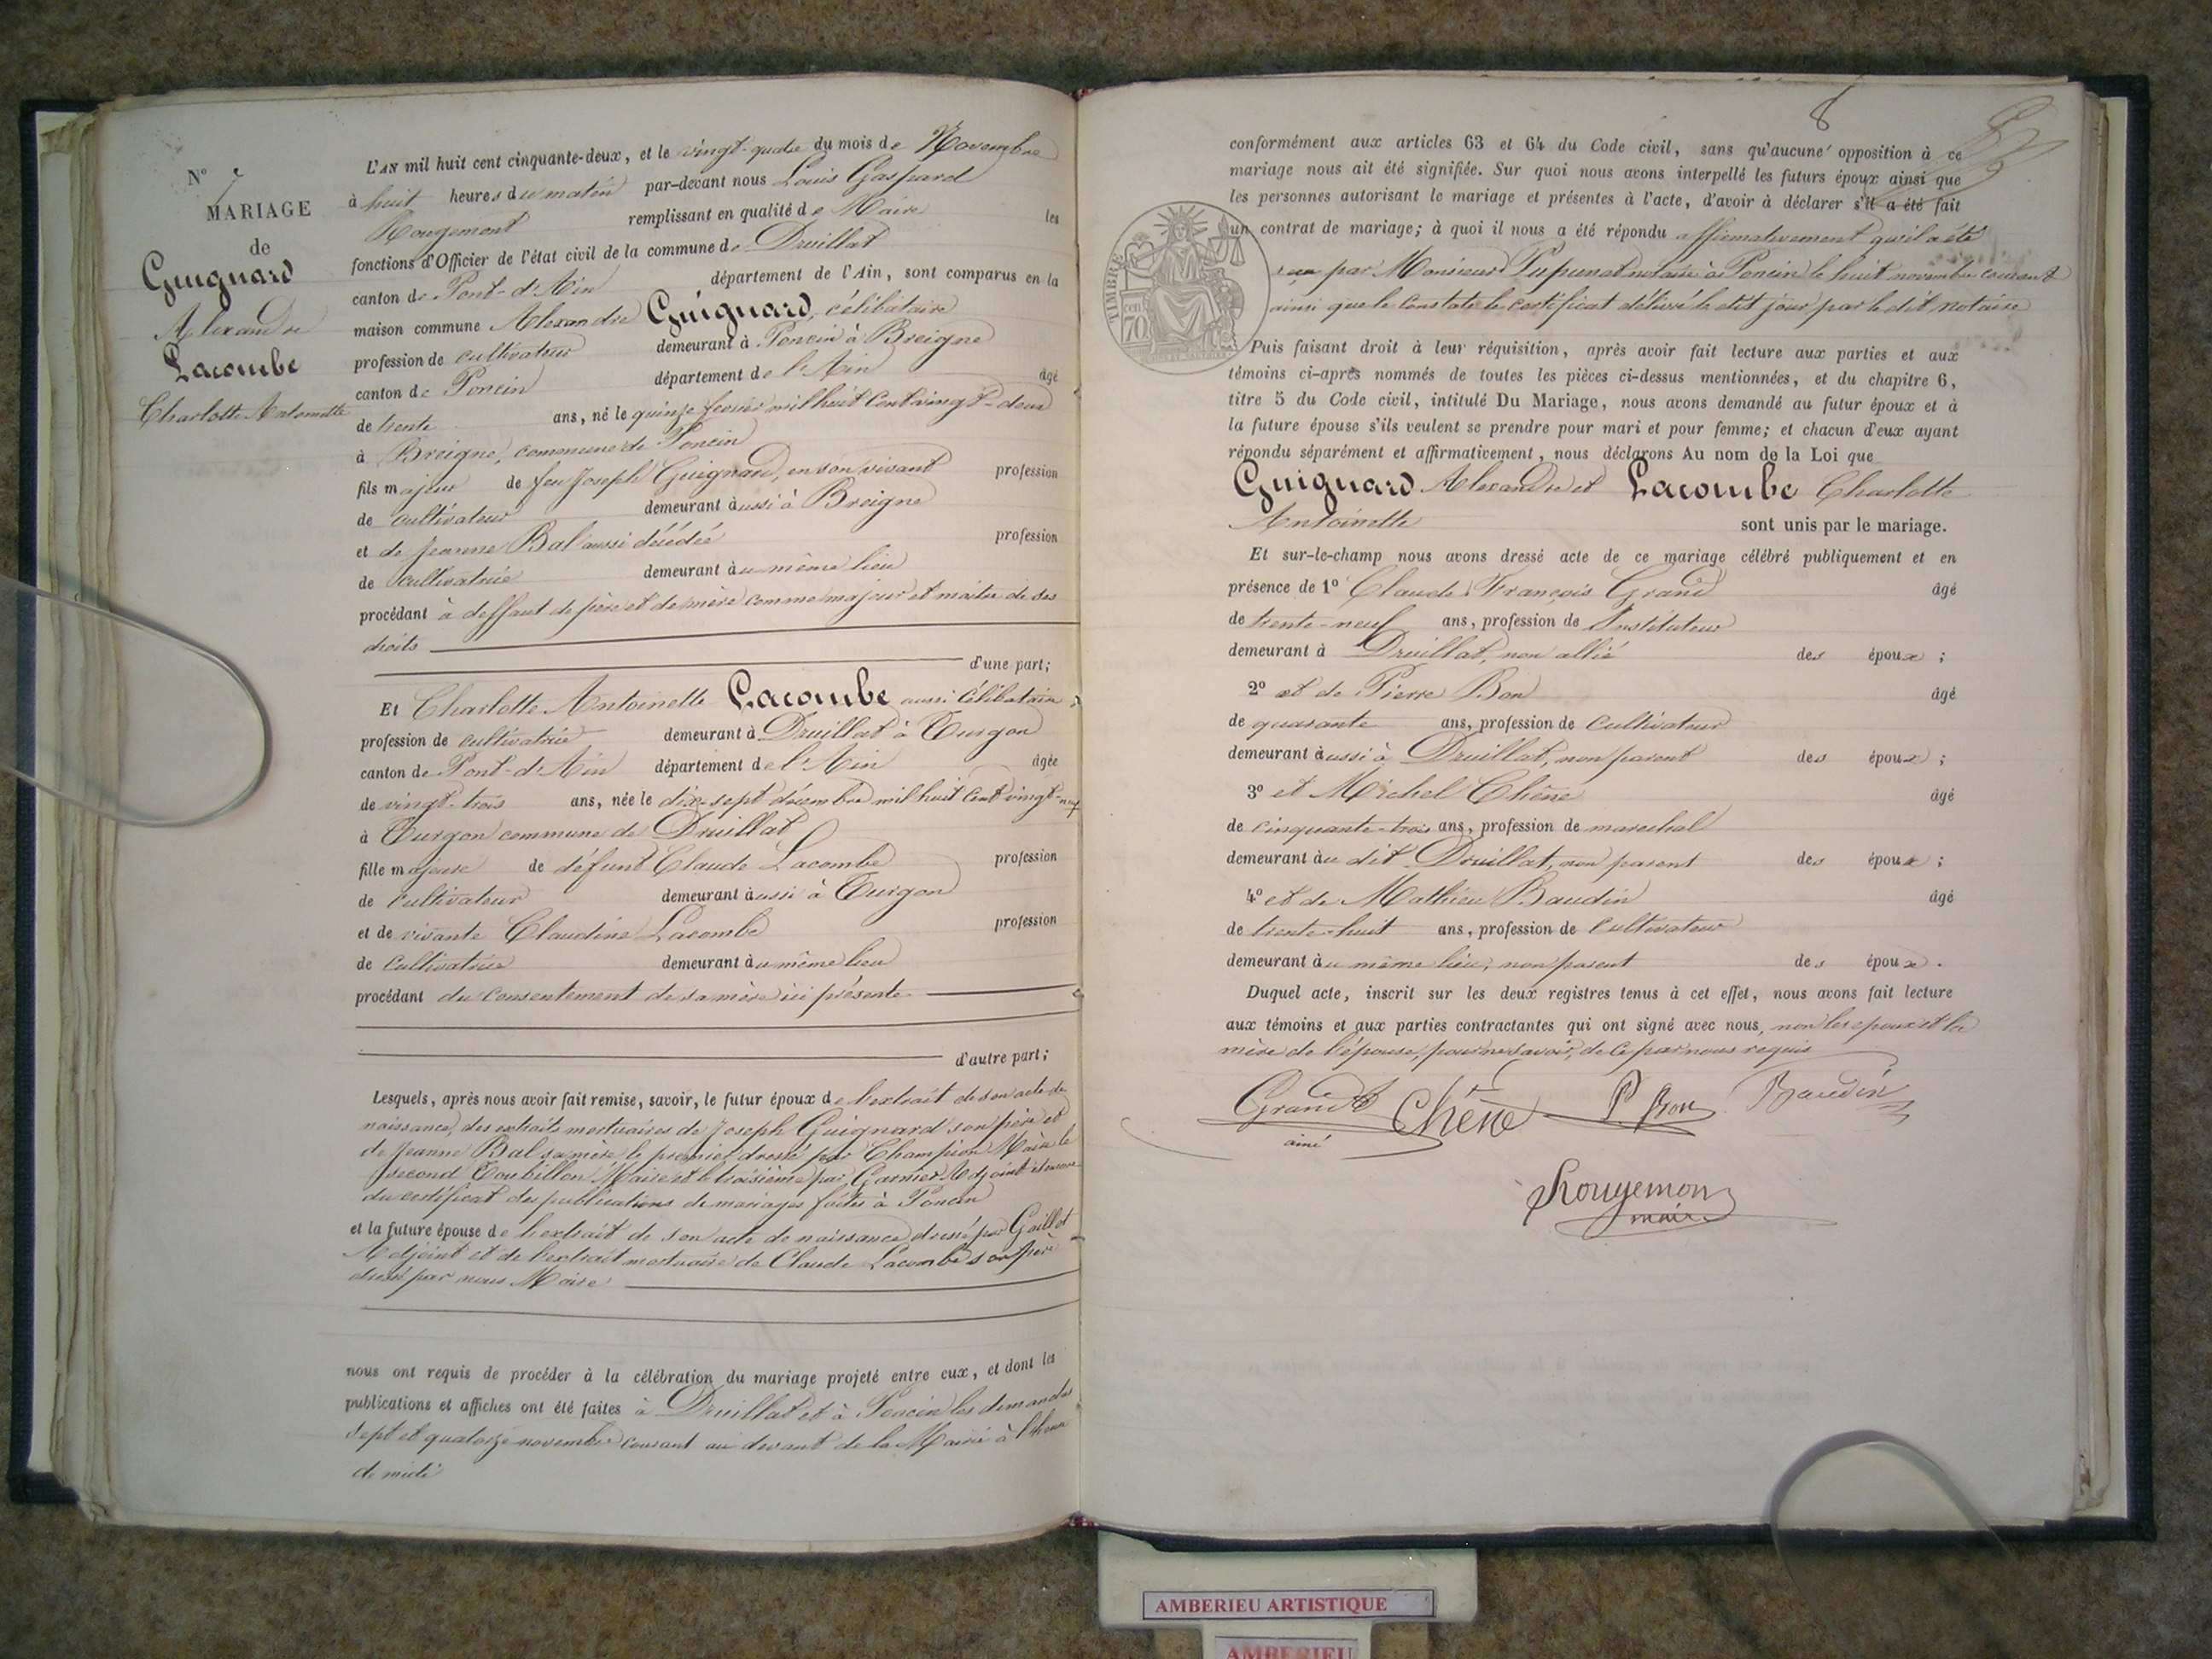 N° 7
MARIAGE
de
Guignard
Alexandre
Lacombe
Charlotte Antoinette
L'AN mil huit cent cinquante-deux, et le vingt-quatre du mois de Novembre
à huit heures du matin par-devant nous Louis Gaspard
Rougemont remplissant en qualité de Maire les
fonctions d'Officier de l'état civil de la commune de Druillat
canton de Pont-d'Ain département de l'Ain, sont comparus en la
maison commune Alexandre Guignard, célibataire
profession de cultivateur demeurant à Poncin à Breigne
canton de Poncin département de l'Ain âgé
de trente ans, né le quinze février mil huit cent vingt-deux
à Breigne, commune de Poncin
fils majeur de feu Joseph Guignard, en son vivant profession
de cultivateur demeurant aussi à Breigne
et de Jeanne Bal aussi décédée profession
de cultivatrice demeurant au même lieu
procédant à deffaut de père et de mère comme majeur et maître de ses
droits
d'une part;
Et Charlotte Antoinette Lacombe aussi célibataire
profession de cultivatrice demeurant à Druillat à Turgon
canton de Pont-d'Ain département de l'Ain âgée
de vingt-trois ans, née le dix-sept décembre mil huit cent vingt-neuf
à Turgon commune de Druillat
fille majeure de défunt Claude Lacombe profession
de cultivateur demeurant aussi à Turgon
et de vivante Claudine Lacombe profession
de cultivatrice demeurant au même lieu
procédant du consentement de sa mère ici présente
d'autre part;
Lesquels, après nous avoir fait remise, savoir, le futur époux de l'extrait de son acte de
naissance, des extraits mortuaires de Joseph Guignard son père et
de Jeanne Bal sa mère le premier dressé par Champion Maire le
second Tourbillon Maire et le troisième par Garnier Adjoint et encore
du certificat des publications de mariages faites à Poncin
et la future épouse de l'extrait de son acte de naissance dressé par Gaillet
Adjoint et de l'extrait mortuaire de Claude Lacombe son père
dressé par nous Maire
nous ont requis de procéder à la célébration du mariage projeté entre eux, et dont les
publications et affiches ont été faites à Druillat et à Poncin les dimanches
sept et quatorze novembre courant au devant de la Mairie à l'heure
de midi
8
conformément aux articles 63 et 64 du Code civil, sans qu'aucune opposition à ce
mariage nous ait été signifiée. Sur quoi nous avons interpellé les futurs époux ainsi que
les personnes autorisant le mariage et présentes à l'acte, d'avoir à déclarer s'il a été fait
un contrat de mariage; à quoi il nous a été répondu affirmativement qu'il a été
reçu par Monsieur Pupunat notaire à Poncin le huit novembre courant
ainsi que le constate le certificat délivré le dit jour par le dit notaire
TIMBRE
70
Puis faisant droit à leur réquisition, après avoir fait lecture aux parties et aux
témoins ci-après nommés de toutes les pièces ci-dessus mentionnées, et du chapitre 6,
titre 5 du Code civil, intitulé Du Mariage, nous avons demandé au futur époux et à
la future épouse s'ils veulent se prendre pour mari et pour femme; et chacun d'eux ayant
répondu séparément et affirmativement, nous déclarons Au nom de la Loi que
Guignard Alexandre et Lacombe Charlotte
Antoinette sont unis par le mariage.
Et sur-le-champ nous avons dressé acte de ce mariage célébré publiquement et en
présence de 1° Claude François Grand âgé
de trente-neuf ans, profession de Instituteur
demeurant à Druillat, non allié des époux ;
2° et de Pierre Bon âgé
de quarante ans, profession de cultivateur
demeurant aussi à Druillat, non parent des époux ;
3° et Michel Chêne âgé
de cinquante-trois ans, profession de marechal
demeurant au dit Druillat, non parent des époux ;
4° et de Mathieu Baudin âgé
de trente-huit ans, profession de cultivateur
demeurant au même lieu, non parent des époux .
Duquel acte, inscrit sur les deux registres tenus à cet effet, nous avons fait lecture
aux témoins et aux parties contractantes qui ont signé avec nous, non les époux et la
mère de l'épouse, pour ne savoir, de ce par nous requis
Grand Chêne P. Bon Baudin
ainé
Rougemont
maire
AMBERIEU ARTISTIQUE
AMBERIEU